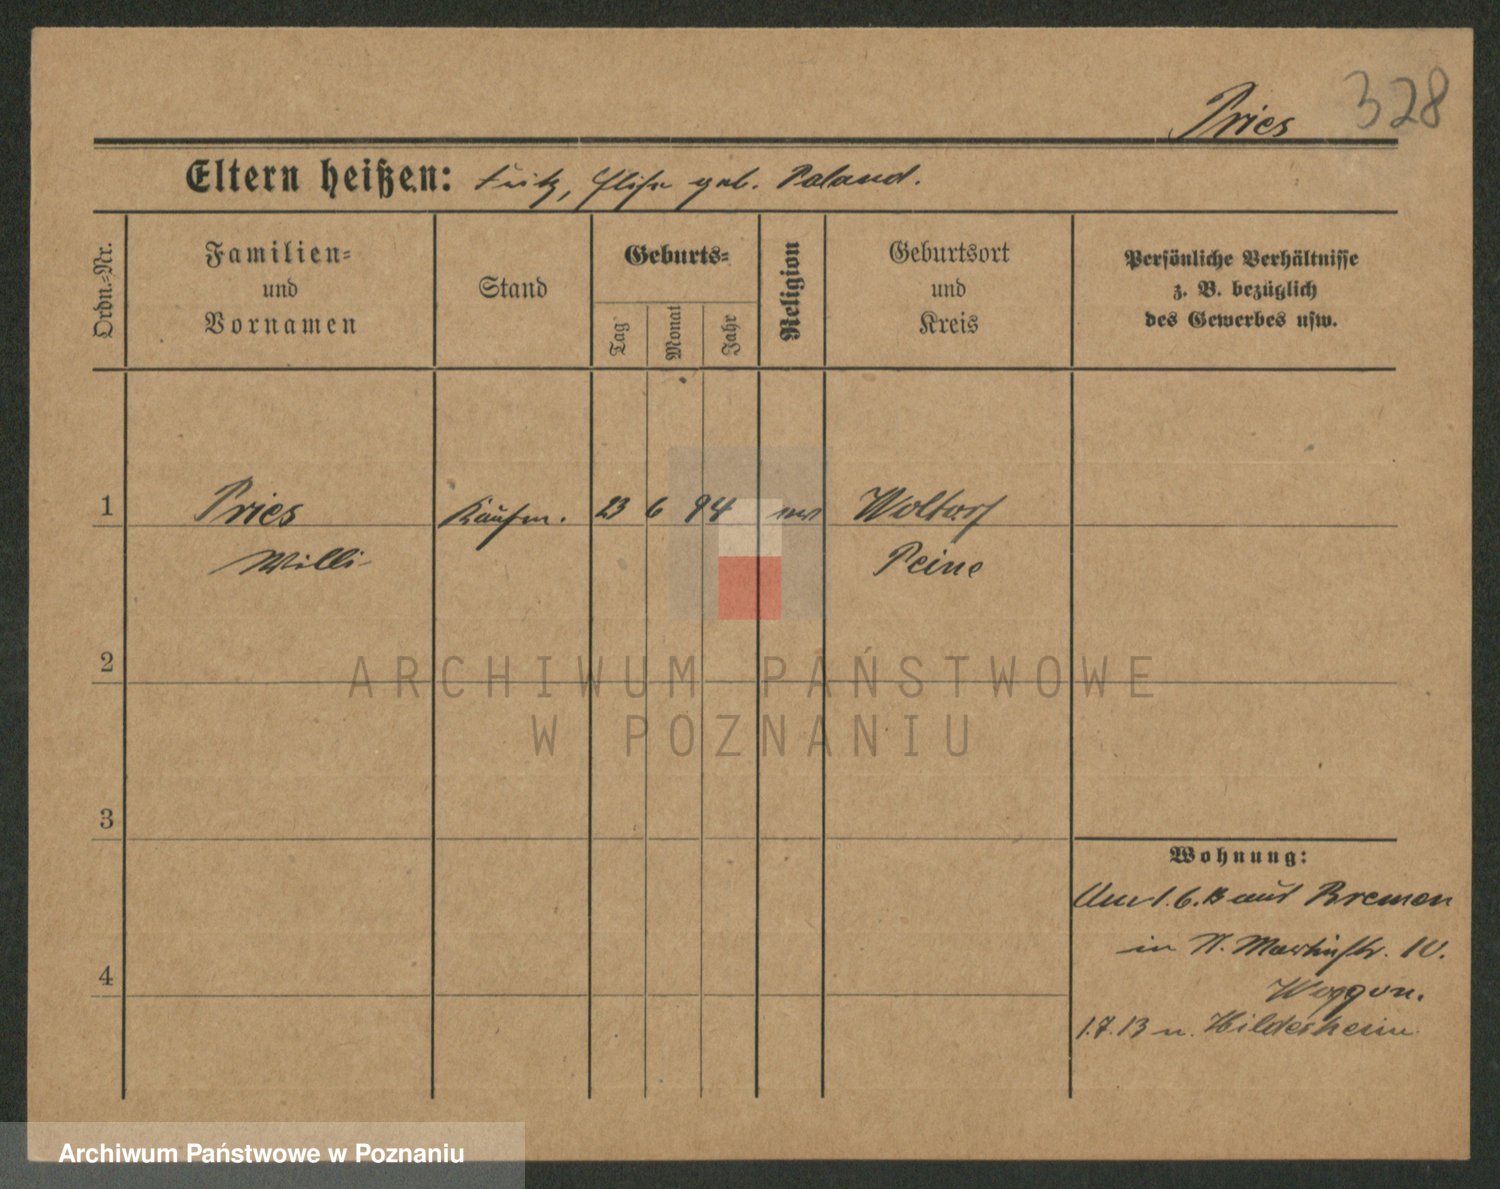 328
Pries
Eltern heißen: Fritz, Elise geb. Poland.
Ordn.-Nr.
Familien- und Vornamen
Stand
Geburts-
Tag
Monat
Jahr
Religion
Geburtsort und Kreis
Persönliche Verhältnisse z. B. bezüglich des Gewerbes usw.
1 Pries Kaufm. 23 6 94 Woltorf
Willi Peine
2
3
4
Wohnung:
1.6.13 aus Bremen
in St. Martinstr. 10.
Woggon.
1.7.13 n. Hildesheim
ARCHIWUM PAŃSTWOWE
W POZNANIU
Archiwum Państwowe w Poznaniu